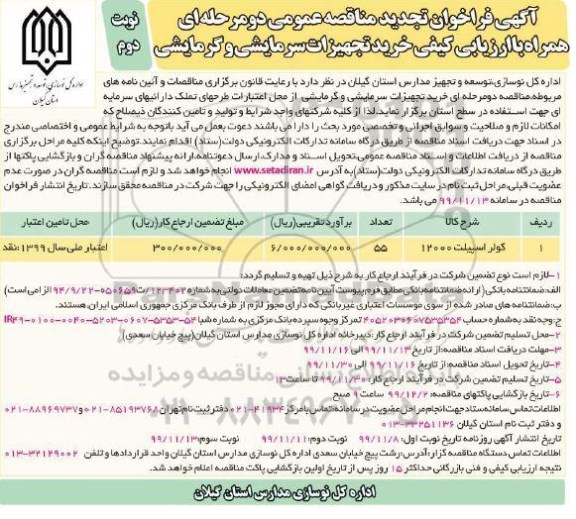 آگهی فراخوان تجدید مناقصه عمومی دومرحله‌ای
همراه با ارزیابی کیفی خرید تجهیزات سرمایشی و گرمایشی
نوبت دوم
اداره کل نوسازی، توسعه و تجهیز مدارس
استان گیلان
اداره کل نوسازی،توسعه و تجهیز مدارس استان گیلان در نظر دارد با رعایت قانون برگزاری مناقصات و آئین نامه های
مربوطه،مناقصه دومرحله ای خرید تجهیزات سرمایشی و گرمایشی از محل اعتبارات طرحهای تملک دارائیهای سرمایه
ای جهت استفاده در سطح استان برگزار نماید.لذا از کلیه شرکتهای واجد شرایط و تولید و تامین کنندگان ذیصلاح که
امکانات لازم و صلاحیت و سوابق اجرائی و تخصصی مورد بحث را دارا می باشند دعوت بعمل می آید باتوجه به شرایط عمومی و اختصاصی مندرج
در اسناد جهت دریافت اسناد مناقصه از طریق درگاه سامانه تدارکات الکترونیکی دولت(ستاد)اقدام نمایند.توضیح اینکه کلیه مراحل برگزاری
مناقصه از دریافت اطلاعات و اسناد مناقصه عمومی،تحویل اسناد و مدارک،ارسال دعوتنامه،ارائه پیشنهاد مناقصه گران و بازگشایی پاکتها از
طریق درگاه سامانه تدارکات الکترونیکی دولت(ستاد)به آدرس www.setadiran.ir انجام خواهد شد و لازم است مناقصه گران در صورت عدم
عضویت قبلی،مراحل ثبت نام در سایت مذکور و دریافت گواهی امضای الکترونیکی را جهت شرکت در مناقصه محقق سازند. تاریخ انتشار فراخوان
مناقصه در سامانه ۹۹/۱۱/۱۳ می باشد.
ردیف شرح کالا تعداد برآورد تقریبی(ریال) مبلغ تضمین ارجاع کار(ریال) محل تامین اعتبار
۱ کولر اسپیلت ۱۲۰۰۰ ۵۵ ۶/۰۰۰/۰۰۰/۰۰۰ ۳۰۰/۰۰۰/۰۰۰ اعتبار ملی سال ۱۳۹۹:نقد
۱-لازم است نوع تضمین شرکت در فرآیند ارجاع کار به شرح ذیل تهیه و تسلیم گردد:
الف:ضمانتنامه بانکی( ارائه ضمانتنامه بانکی مطابق فرم پیوست آیین نامه تضمین معاملات دولتی به شماره ۱۲۳۴۰۲/ت۵۰۶۵۹ه-۹۴/۹/۲۲ الزامی است)
ب:ضمانتنامه های صادره شده از سوی موسسات اعتباری غیربانکی که دارای مجوز لازم از طرف بانک مرکزی جمهوری اسلامی ایران هستند.
ج:وجه نقد به شماره حساب ۴۰۵۲۰۳۰۶۰۷۵۳۵۳۵۴ تمرکز وجوه سپرده بانک مرکزی به شماره شبا
۲-محل تسلیم تضمین شرکت در فرآیند ارجاع کار:دبیرخانه اداره کل نوسازی مدارس استان گیلان(پیچ خیابان سعدی)
۳-مهلت دریافت اسناد مناقصه:از تاریخ ۹۹/۱۱/۱۳ الی ۹۹/۱۱/۱۶
۴-تاریخ تحویل اسناد مناقصه:از تاریخ ۹۹/۱۱/۱۶ الی ۹۹/۱۱/۳۰
۵-تاریخ تسلیم تضمین شرکت در فرآیند ارجاع کار: ۹۹/۱۱/۳۰ تا ساعت ۱۳
۶-تاریخ بازگشایی پاکتهای مناقصه: ۹۹/۱۲/۲ ساعت ۹ صبح
اطلاعات تماس سامانه ستاد جهت انجام مراحل عضویت در سامانه:تماس با مرکز ۴۱۹۳۴-۰۲۱ دفتر ثبت نام تهران ۸۵۱۹۳۷۶۸-۰۲۱ و ۸۸۹۶۹۷۳۷-۰۲۱
و دفتر ثبت نام استان گیلان ۳۳۲۵۱۱۳۶-۰۱۳
تاریخ انتشار آگهی روزنامه تاریخ نوبت اول: ۹۹/۱۱/۸ نوبت دوم: ۹۹/۱۱/۱۱ نوبت سوم: ۹۹/۱۱/۱۳
اطلاعات تماس دستگاه مناقصه گزار:آدرس:رشت پیچ خیابان سعدی اداره کل نوسازی مدارس استان گیلان واحد قراردادها و تلفن ۳۲۱۲۹۰۰۲-۰۱۳
نتیجه ارزیابی کیفی و فنی بازرگانی حداکثر ۱۵ روز پس از تاریخ اولین بازگشایی پاکت مناقصه اعلام خواهد شد.
اداره کل نوسازی مدارس استان گیلان